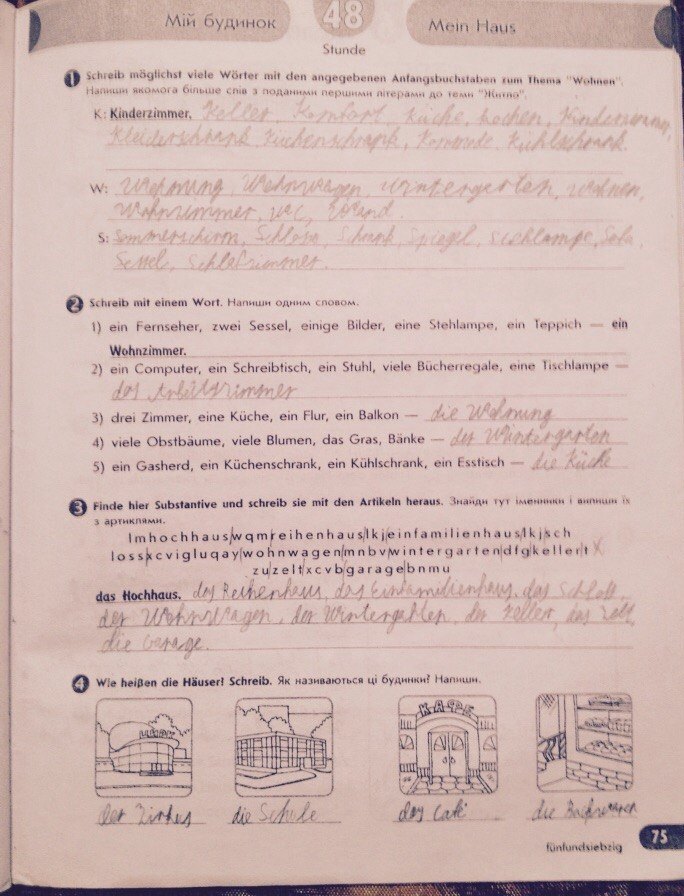 Мій будинок
48
Stunde
Mein Haus
1 Schreib möglichst viele Wörter mit den angegebenen Anfangsbuchstaben zum Thema "Wohnen".
Напиши якомога більше слів з поданими першими літерами до теми "Житло".
K: Kinderzimmer, Keller, Komfort, Küche, kochen, Kinderzimmer,
Kleiderschrank, Küchenschrank, Komode, Kühlschrank.
W: Wohnung, Wohnwagen, Wintergarten, wohnen,
Wohnzimmer, WC, Wand.
S: Sommerschirm, Schloss, Schrank, Spiegel, Stehlampe, Sofa,
Sessel, Schlafzimmer.
2 Schreib mit einem Wort. Напиши одним словом.
1) ein Fernseher, zwei Sessel, einige Bilder, eine Stehlampe, ein Teppich — ein
Wohnzimmer.
2) ein Computer, ein Schreibtisch, ein Stuhl, viele Bücherregale, eine Tischlampe —
das Arbeitszimmer
3) drei Zimmer, eine Küche, ein Flur, ein Balkon — die Wohnung
4) viele Obstbäume, viele Blumen, das Gras, Bänke — der Wintergarten
5) ein Gasherd, ein Küchenschrank, ein Kühlschrank, ein Esstisch — die Küche
3 Finde hier Substantive und schreib sie mit den Artikeln heraus. Знайди тут іменники і випиши їх
з артиклями.
lmhochhauswqmreihenhauslkjeinfamilienhauslkjsch
lossxcvigluqaywohnwagenmnbvwintergartendfgkellert
zuzeltxcvbgaragebnmu
das Hochhaus, das Reihenhaus, das Einfamilienhaus, das Schloß,
der Wohnwagen, der Wintergarten, der Keller, das Zelt,
die Garage.
4 Wie heißen die Häuser? Schreib. Як називаються ці будинки? Напиши.
ЦИРК
КАФЕ
der Zirkus die Schule das Café die Backwaren
fünfundsiebzig
75